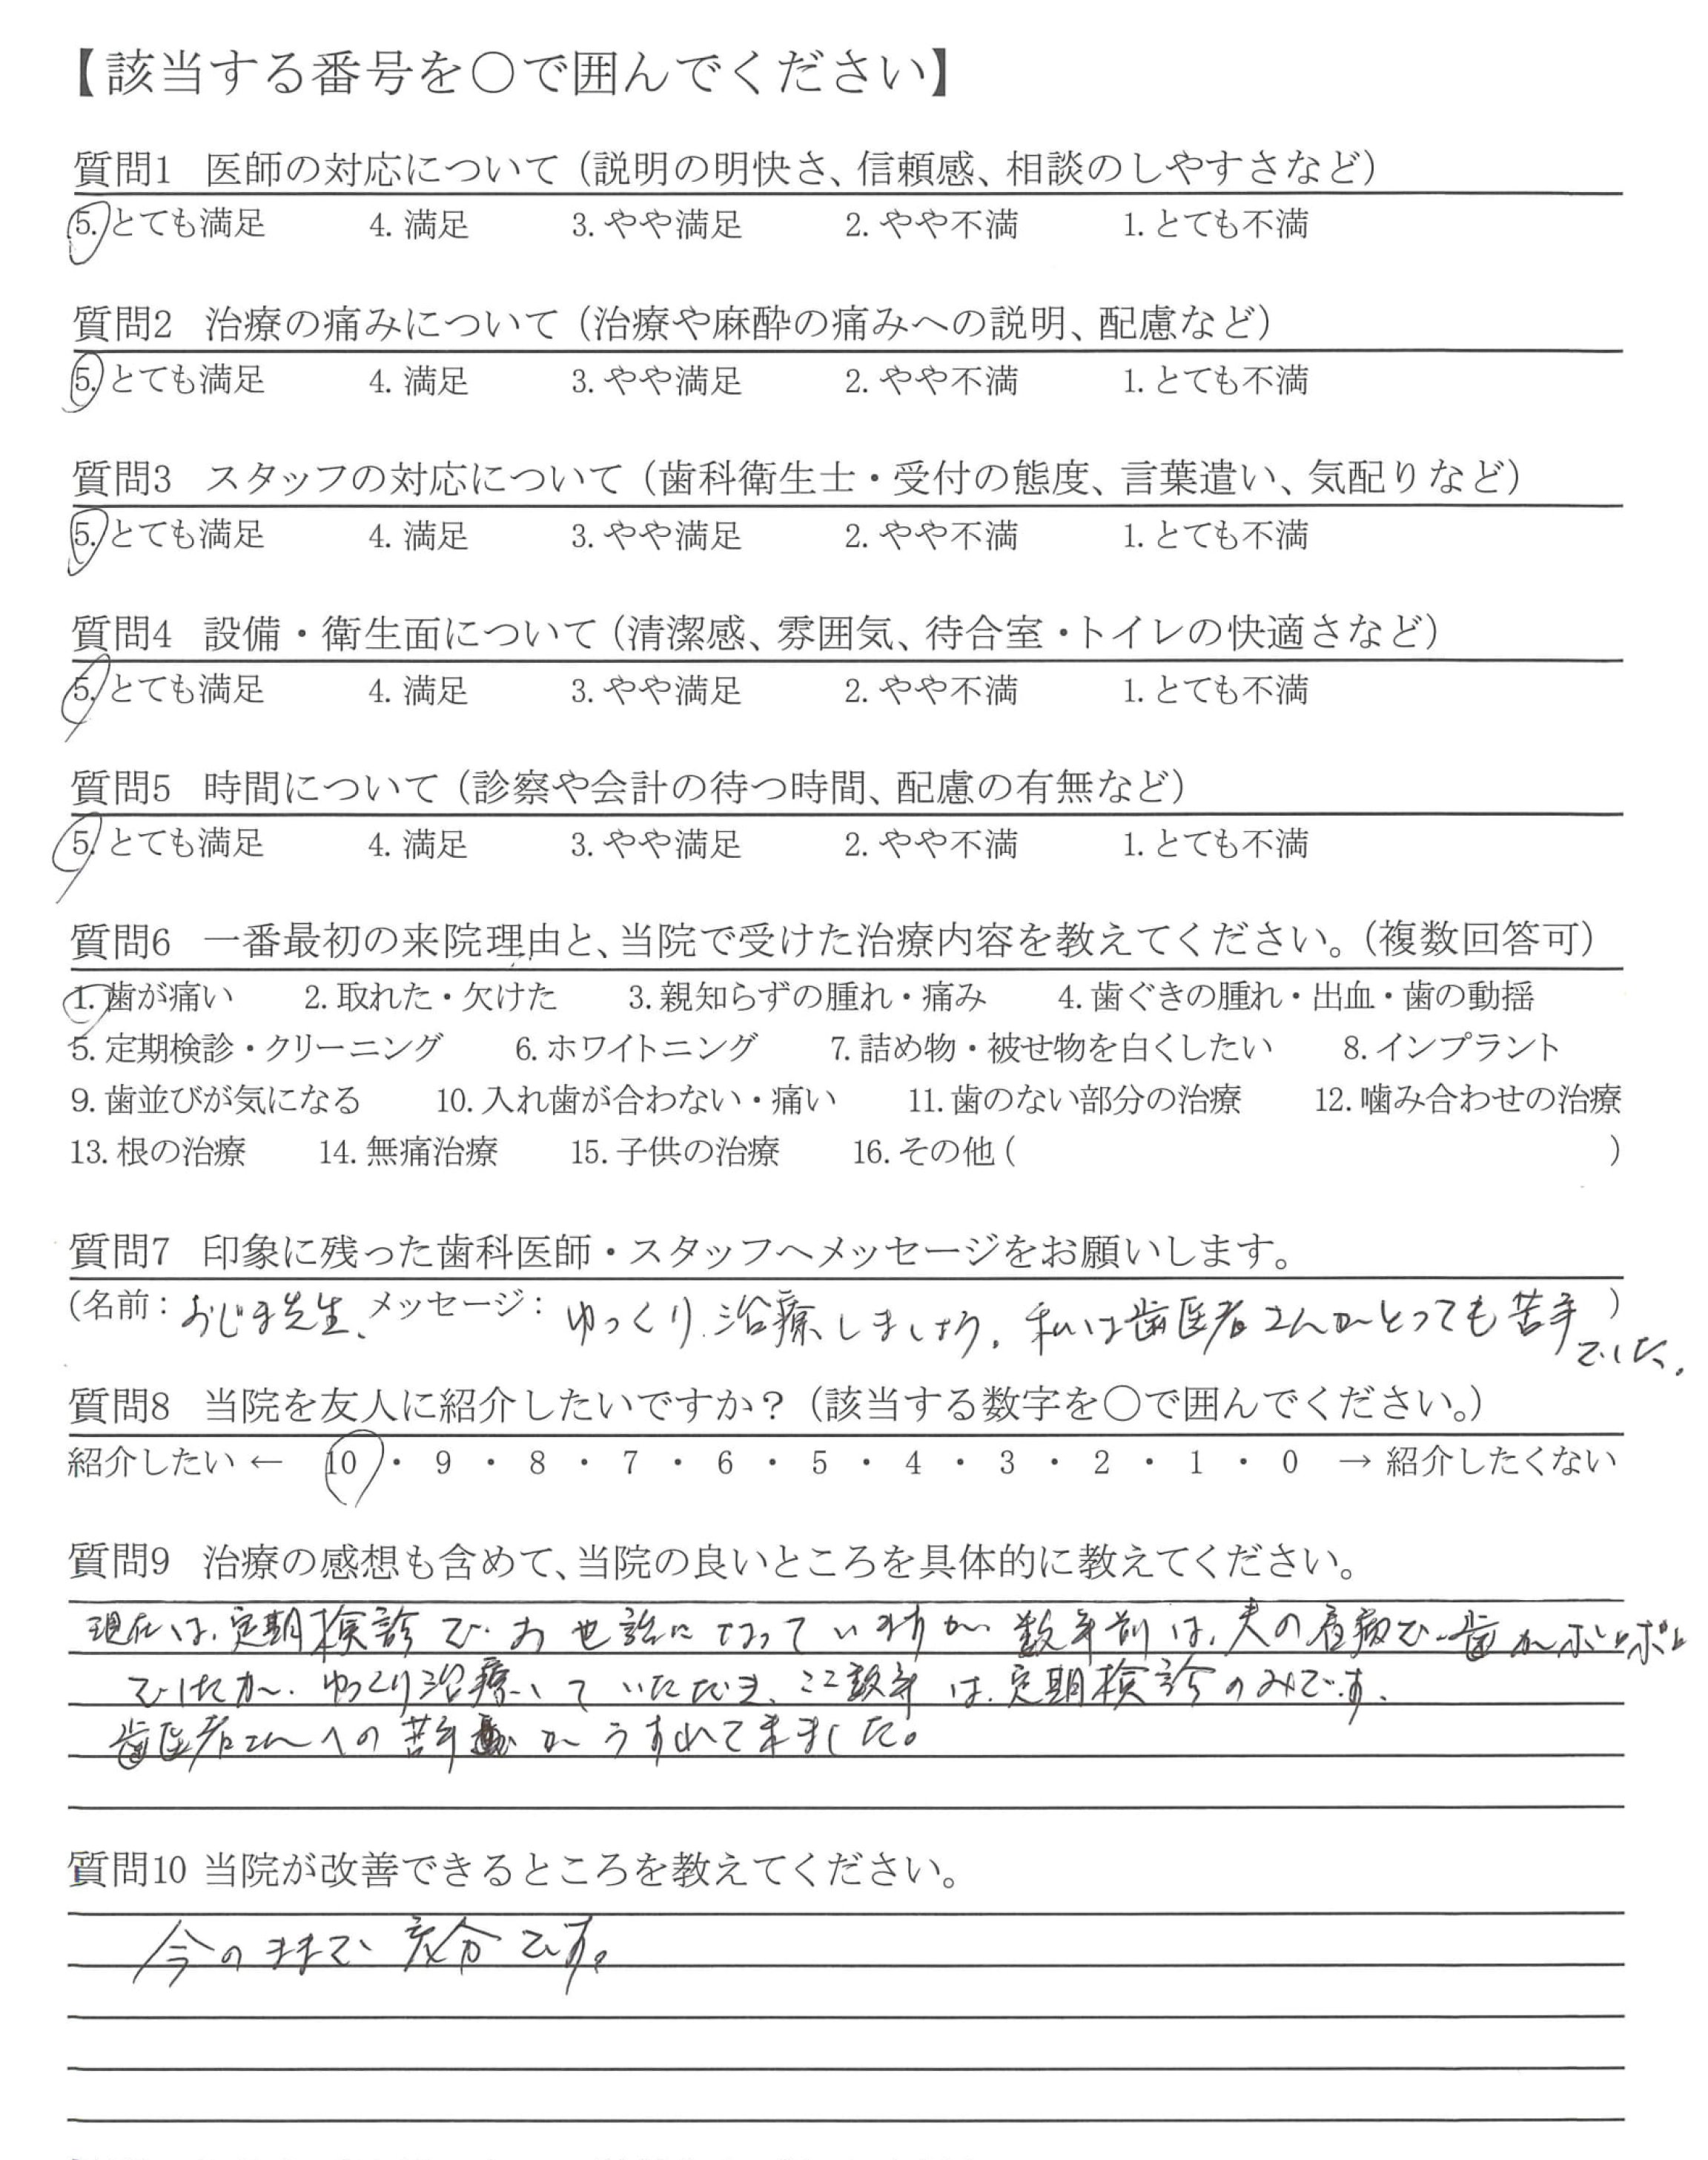 【該当する番号を○で囲んでください】
質問1 医師の対応について（説明の明快さ、信頼感、相談のしやすさなど）
5. とても満足 4. 満足 3. やや満足 2. やや不満 1. とても不満
質問2 治療の痛みについて（治療や麻酔の痛みへの説明、配慮など）
5. とても満足 4. 満足 3. やや満足 2. やや不満 1. とても不満
質問3 スタッフの対応について（歯科衛生士・受付の態度、言葉遣い、気配りなど）
5. とても満足 4. 満足 3. やや満足 2. やや不満 1. とても不満
質問4 設備・衛生面について（清潔感、雰囲気、待合室・トイレの快適さなど）
5. とても満足 4. 満足 3. やや満足 2. やや不満 1. とても不満
質問5 時間について（診察や会計の待つ時間、配慮の有無など）
5. とても満足 4. 満足 3. やや満足 2. やや不満 1. とても不満
質問6 一番最初の来院理由と、当院で受けた治療内容を教えてください。（複数回答可）
1. 歯が痛い 2. 取れた・欠けた 3. 親知らずの腫れ・痛み 4. 歯ぐきの腫れ・出血・歯の動揺
5. 定期検診・クリーニング 6. ホワイトニング 7. 詰め物・被せ物を白くしたい 8. インプラント
9. 歯並びが気になる 10. 入れ歯が合わない・痛い 11. 歯のない部分の治療 12. 噛み合わせの治療
13. 根の治療 14. 無痛治療 15. 子供の治療 16. その他（ ）
質問7 印象に残った歯科医師・スタッフへメッセージをお願いします。
（名前：おじま先生、メッセージ：ゆっくり治療しましょう。私は歯医者さんがとっても苦手）
でした。
質問8 当院を友人に紹介したいですか？（該当する数字を○で囲んでください。）
紹介したい ← 10 ・ 9 ・ 8 ・ 7 ・ 6 ・ 5 ・ 4 ・ 3 ・ 2 ・ 1 ・ 0 → 紹介したくない
質問9 治療の感想も含めて、当院の良いところを具体的に教えてください。
現在は、定期検診でお世話になっていますが 数年前は、夫の看病で歯がボロボロ
でしたが、ゆっくり治療していただき、ここ数年は、定期検診のみです。
歯医者さんへの苦手 がうすれて来ました。
質問10 当院が改善できるところを教えてください。
今のままで充分です。